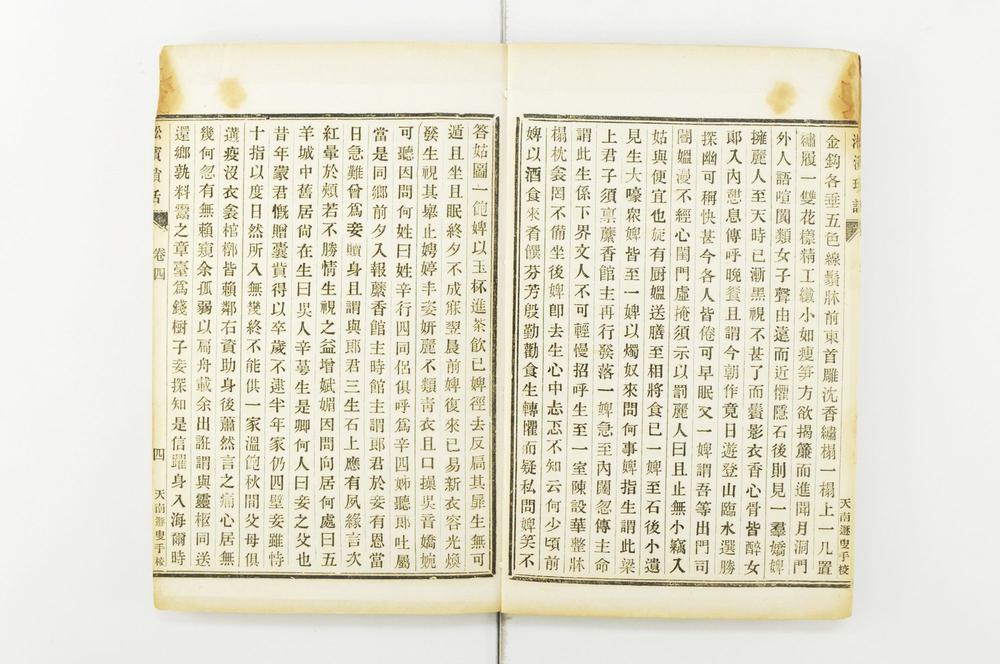 淞濱瑣話
金鉤各垂五色線鬚牀前東首雕沈香繡榻一榻上一几置
繡履一雙花樣精工纖小如瘦笋方欲揭簾而進聞月洞門
外人語喧闐類女子聲由遠而近懼隱石後則見一羣嬌婢
擁麗人至天時已漸黑視不甚了而鬢影衣香心骨皆醉女
郎入內憩息傳呼晚餐且謂今朝作竟日遊登山臨水選勝
探幽可稱快甚今各人皆倦可早眠又一婢謂吾等出門司
閽媼漫不經心閨門虛掩須示以罰麗人曰且止無小竊入
姑與便宜也旋有厨媼送膳至相將食已一婢至石後小遺
見生大嚎衆婢皆至一婢以燭奴來問何事婢指生謂此梁
上君子須稟蘼香館主再行發落一婢急至內闥忽傳主命
謂此生係下界文人不可輕慢招呼生至一室陳設華整牀
榻枕衾罔不備坐後婢卽去生心中忐忑不知云何少頃前
婢以酒食來肴饌芬芳殷勤勸食生轉懼而疑私問婢笑不
天南遯叟手校
答姑圖一飽婢以玉杯進茶飲已婢徑去反扃其扉生無可
遁且坐且眠終夕不成寐翌晨前婢復來已易新衣容光煥
發生視其舉止娉婷丰姿妍麗不類青衣且口操吳音嬌婉
可聽因問何姓曰姓辛行四同侶俱呼爲辛四姊聽郎吐屬
當是同鄉前夕入報蘼香館主時館主謂郎君於妾有恩當
日急難曾爲妾贖身且謂與郎君三生石上應有夙緣言次
紅暈於頰若不勝情生視之益增娬媚因問向居何處曰五
羊城中舊居尙在生曰吳人辛蕚生是卿何人曰妾之父也
昔年蒙君慨贈囊貲得以卒歲不逮半年家仍四壁妾雖恃
十指以度日然所入無幾終不能供一家溫飽秋間父母俱
遘疫沒衣衾棺槨皆賴鄰右資助身後蕭然言之痛心居無
幾何忽有無賴窺余孤弱以扁舟載余出誑謂與靈柩同送
還鄉孰料鬻之章臺爲錢樹子妾探知是信躍身入海爾時
淞濱瑣話
卷四
四
天南遯叟手校